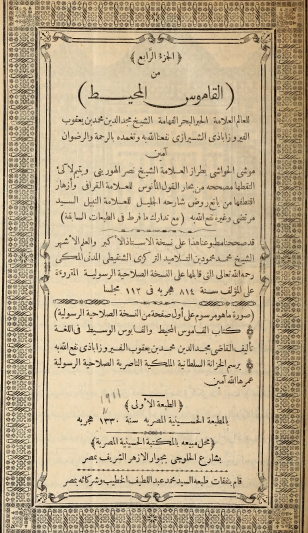 ﴿ الجزء الرابع ﴾
من
( القاموس المحيط )
للعالم العلامة الحبر البحر الفهامة الشيخ مجد الدين محمد بن يعقوب
الفيروزاباذى الشيرازى نفعنا الله به وتغمده بالرحمة والرضوان
آمين
موشى الحواشى بطراز العلامة الشيخ نصر الهورينى وبتمم لآلئ
التقطها مصححه من بحار القول المأنوس للعلامة القرافى وأزهار
اقتطفها من يانع روض شارحه الجليل العلامة النبيل السيد
مرتضى وغيره نفع الله به ( مع تدارك ما فرط فى الطبعات السابقة )
قد صححنا مطبوعنا هذا على نسخة الاستاذ الاكبر والعلم الأشهر
الشيخ محمد محمود بن التلاميد التركزى الشنقيطى المدنى المكى
رحمه الله تعالى التى قابلها على النسخة الصلاحية الرسولية المقروءة
على المؤلف سنة ٨١٤ هجريه فى ١١٢ مجلسا
( صورة ما هو مرسوم على أول صفحة من النسخة الصلاحية الرسولية )
﴿ كتاب القاموس المحيط والقابوس الوسيط فى اللغة
تأليف القاضى مجد الدين محمد بن يعقوب الفيروزاباذى نفع الله به
برسم الخزانة السلطانية الملكية الناصرية الصلاحية الرسولية
عمرها الله آمين ﴾
1911
﴿ الطبعة الأولى ﴾
بالمطبعة الحسينية المصريه سنة ١٣٣٠ هجريه
﴿ محل مبيعه بالمكتبة الحسينية المصرية ﴾
بشارع الحلوجى بجوار الازهر الشريف بمصر
قام بنفقات طبعه السيد محمد عبد اللطيف الخطيب وشركائه بمصر